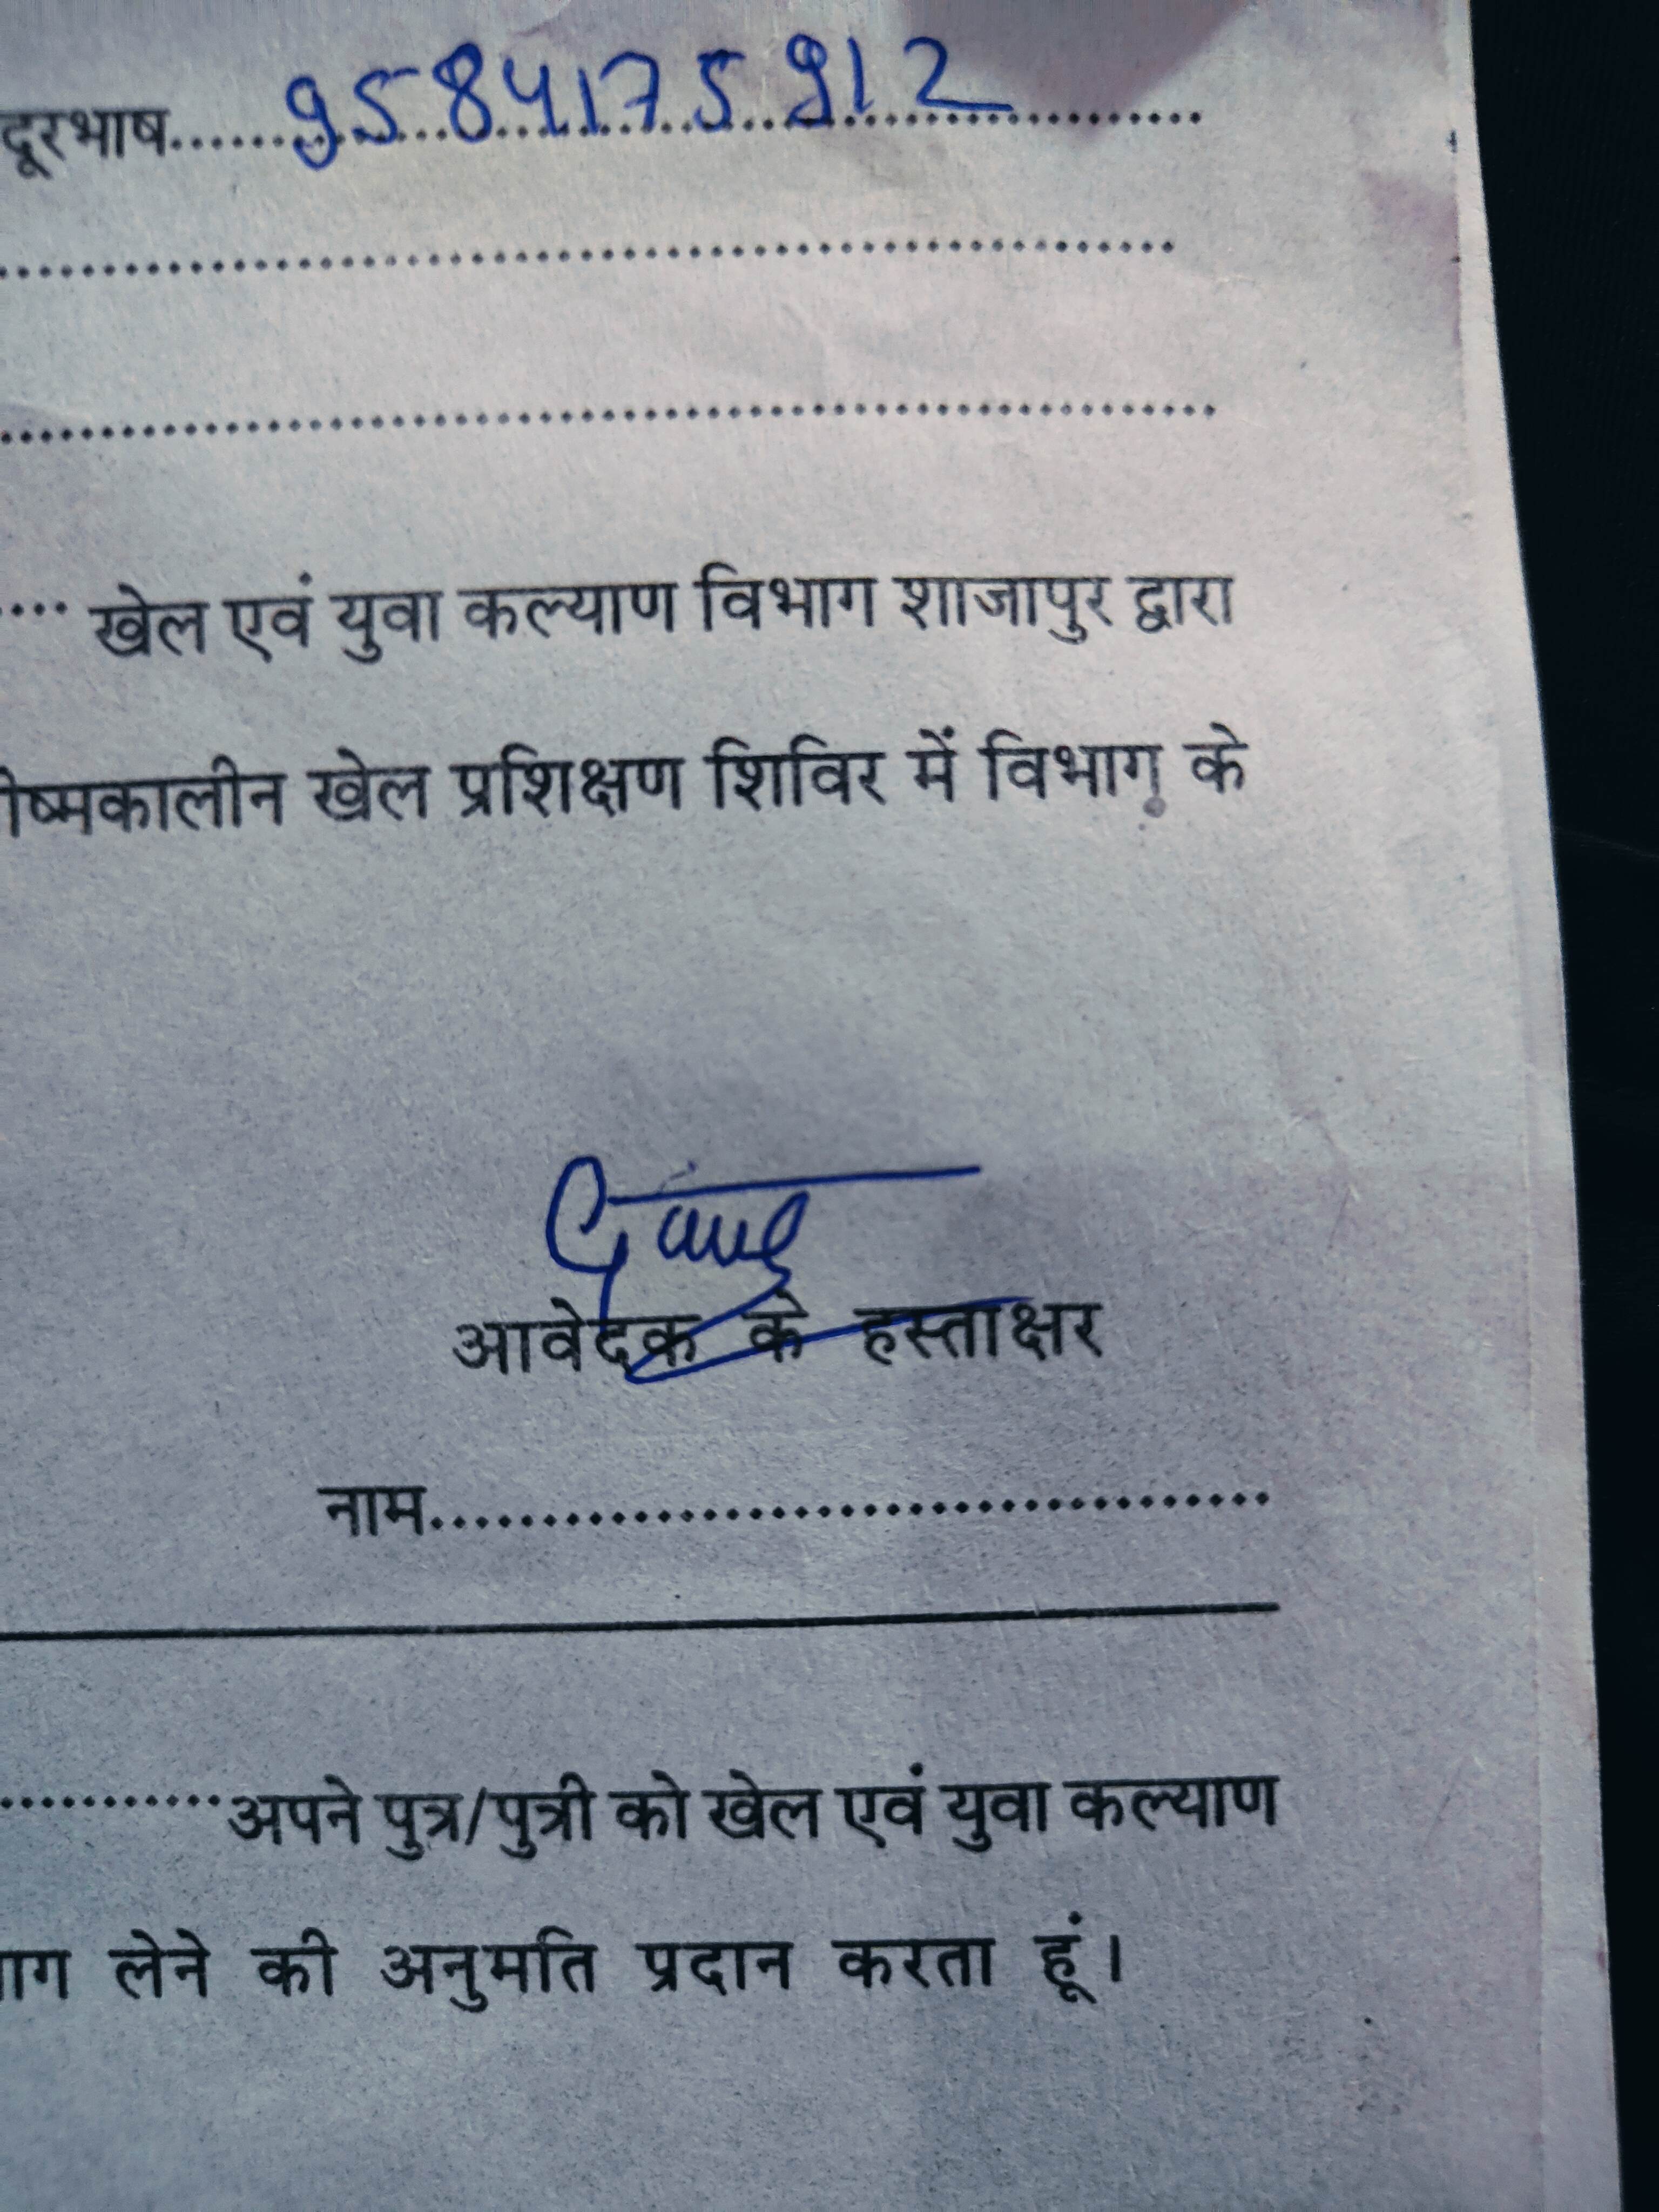 दूरभाष......9584175912..........
..........................................
..........................................
.... खेल एवं युवा कल्याण विभाग शाजापुर द्वारा
ीष्मकालीन खेल प्रशिक्षण शिविर में विभाग के
आवेदक के हस्ताक्षर
नाम.....................................
............अपने पुत्र/पुत्री को खेल एवं युवा कल्याण
ाग लेने की अनुमति प्रदान करता हूं।